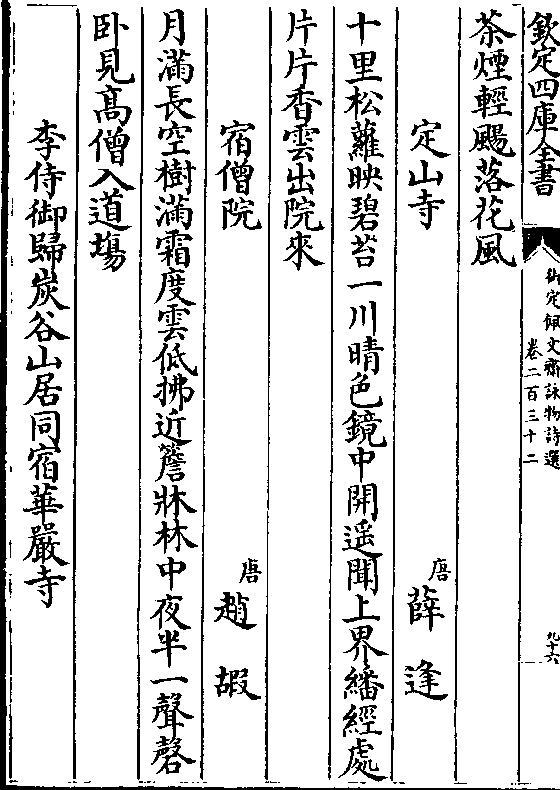 欽定四庫全書
御定佩文齋詠物詩選
卷二百三十二
九十六
茶煙輕颺落花風
定山寺
唐薛逢
十里松蘿映碧苔一川晴色鏡中開遥聞上界繙經處
片片香雲出院來
宿僧院
唐趙嘏
月滿長空樹滿霜度雲低拂近簷牀林中夜半一聲磬
卧見髙僧入道塲
李侍御歸炭谷山居同宿華嚴寺